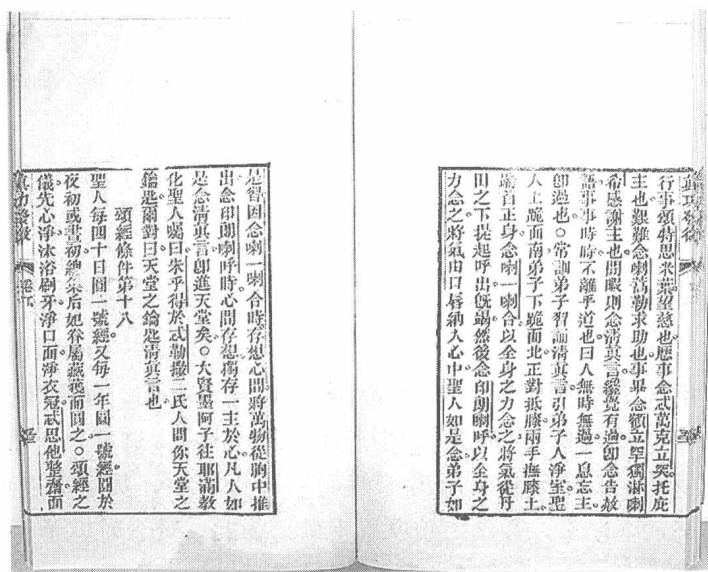 真功發微
行事頌特思米葉望慈也應事念忒萬克立突托庇
主也艱難念喇勒求助也事畢念額立罕獨淋喇
希感謝主也閒暇則念清真言纔覺有過即念告赦
語事事時時不離乎道也曰人無時無過一息忘主
即過也○常訓弟子習誦清真言引弟子入淨室聖
人上跪面南弟子下跪面北正對抵膝兩手撫膝上
端首正身念喇一喇合以全身之力念之將氣從丹
田之下提起呼出旣竭然後念印朗喇呼以全身之
力念之將氣由口唇納入心中聖人如是念弟子如
是習因念喇一喇合時存想心間將萬物從胸中推
出念印朗喇呼時心間存想獨存一主於心凡人如
是念清真言即進天堂矣○大賢墨阿子往耶滿敎
化聖人囑曰朱乎得於忒勒撒二氏人問你天堂之
鑰匙爾對曰天堂之鑰匙清真言也
頌經條件第十八
聖人每四十日圓一號經又每一年圓一號經圓於
夜初或晝初總集后妃眷屬親而圓之○頌經之
儀先心淨沐浴刷牙淨口面淨衣冠忒思他整齋面
真功發微 卷下